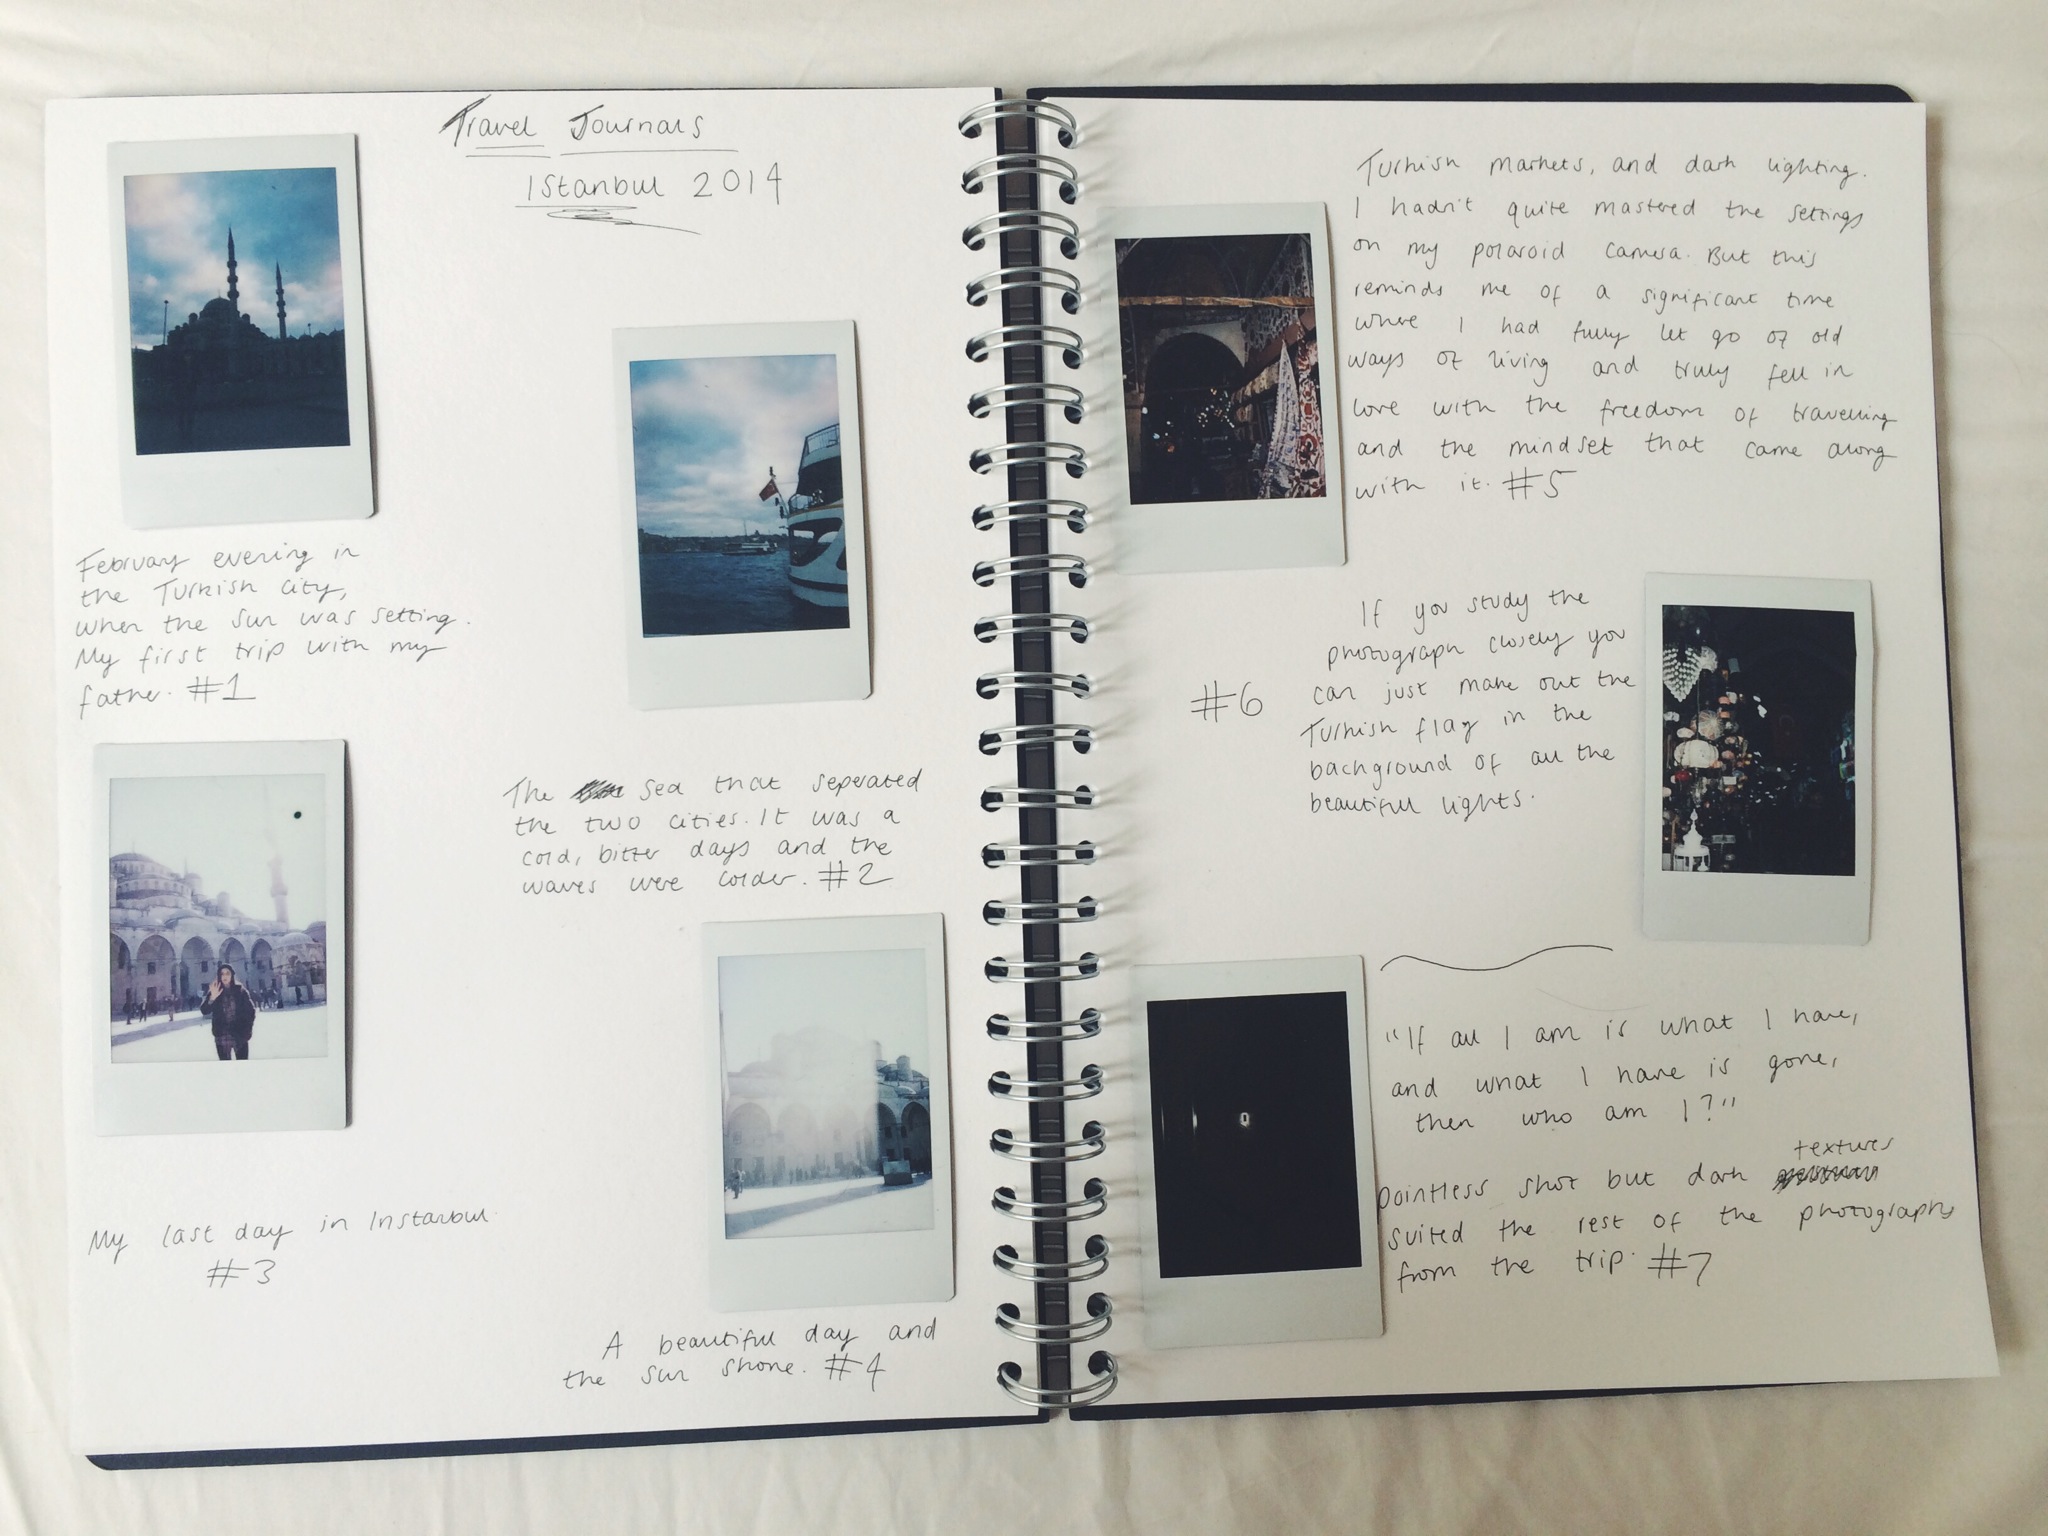 Travel Journals
Istanbul 2014
February evening in
the Turkish city,
when the sun was setting.
My first trip with my
father. #1
The sea that seperated
the two cities. It was a
cold, bitter days and the
waves were colder. #2
My last day in Instanbul
#3
A beautiful day and
the sun shone. #4
Turkish markets, and dark lighting.
I hadn't quite mastered the settings
on my polaroid camera. But this
reminds me of a significant time
where I had fully let go of old
ways of living and truly fell in
love with the freedom of travelling
and the mindset that came along
with it. #5
If you study the
photograph closely you
can just make out the
Turkish flag in the
background of all the
beautiful lights.
#6
"If all I am is what I have,
and what I have is gone,
then who am I?"
textures
Pointless shot but dark
suited the rest of the photographs
from the trip. #7